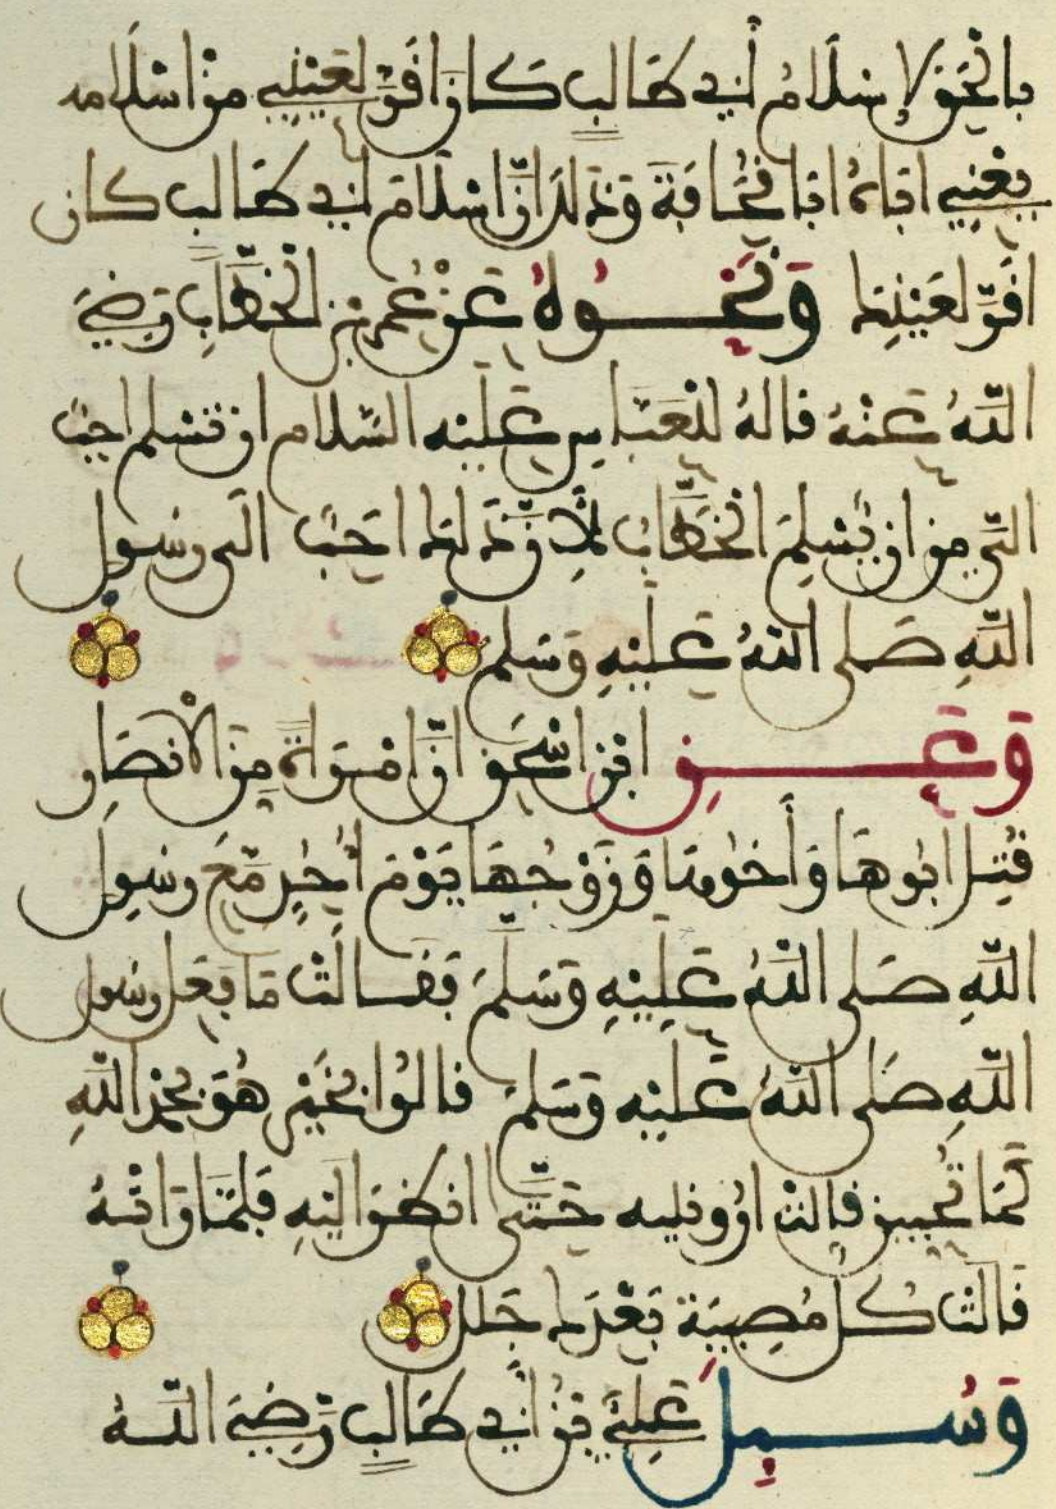 بالحق لإسلام أبي طالب كان أقر لعيني من إسلامه
يعني أباه أبا قحافة وذلك أن إسلام أبي طالب كان
أقر لعينك ونحوه عن عمر بن الخطاب رضي
الله عنه قاله للعباس عليه السلام أن تسلم أحب
إلي من أن يسلم الخطاب لأن ذلك أحب إلى رسول
الله صلى الله عليه وسلم
وعن ابن إسحق أن امرأة من الأنصار
قتل أبوها وأخوها وزوجها يوم أحد مع رسول
الله صلى الله عليه وسلم فقالت ما فعل رسول
الله صلى الله عليه وسلم قالوا بخير هو بحمد الله
كما تحبين قالت أرونيه حتى أنظر إليه فلما رأته
قالت كل مصيبة بعدك جلل
وسئل علي بن أبي طالب رضي الله